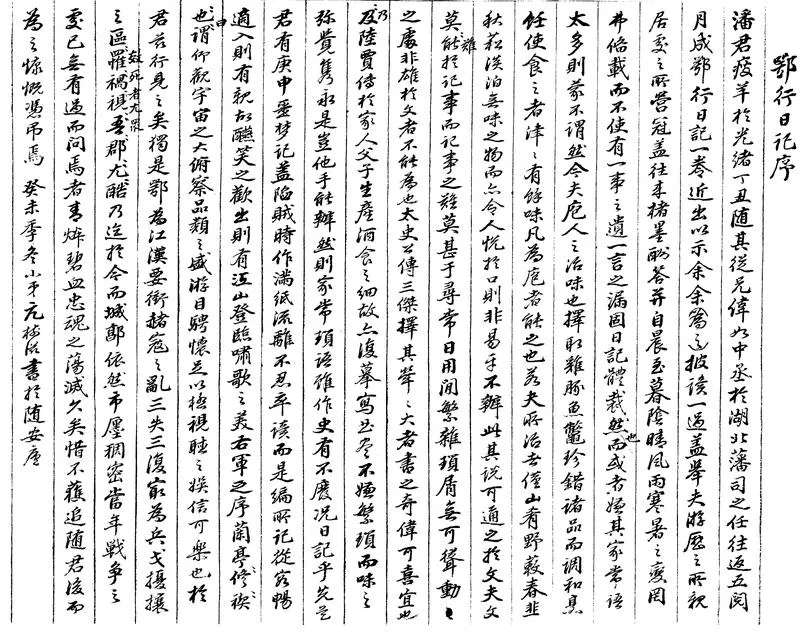 鄂行日記序
潘君瘦羊於光緒丁丑隨其從兄偉如中丞於湖北藩司之任往返五閱
月成鄂行日記一卷近出以示余余篝燈披讀一過蓋舉夫游歷之所親
居處之所營冠蓋往來楮墨酬答并自晨至暮陰晴風雨寒暑之變罔
弗偹載而不使有一事之遺一言之漏固日記體裁然也而或者嫌其家常語
太多則蒙不謂然今夫庖人之治味也擇取雞豚魚鱉珍錯諸品而調和烹
飪使食之者津津有餘味凡為庖者能之也若夫所治者僅山肴野蔌春韭
秋菘淡泊無味之物而亦令人悅於口則非易牙不辦此其說可通之於文夫文
莫難於記事而記事之難莫甚于尋常日用間繁雜瑣屑無可聳動
之處非雄於文者不能為也太史公傳三傑擇其犖犖大者書之奇偉可喜宜也
乃陸賈傳於家人父子生產酒食之細故亦復摹寫不嫌繁瑣而味之
彌覺雋永是豈他手能辦然則家常瑣語雖作史有不廢況日記乎先是
君有庚申噩梦記蓋陷賊時作滿紙流離不忍卒讀而是編所記從容暢
適入則有親故讌笑之歡出則有江山登臨嘯歌之美右軍之序蘭亭修禊
也曰謂仰觀宇宙之大俯察品類之盛游目騁懷足以極視聽之娛信可樂也於
君茲行見之矣獨是鄂為江漢要衝赭寇之亂三失三復最為兵戈擾攘
之區罹禍致死者尤眾視吾郡尤酷乃迄於今而城郭依然市廛稠密當年戰爭之
處已無有過而問焉者青燐碧血忠魂之蕩滅久矣惜不獲追隨君後而
為之慷慨憑弔焉 癸未季冬小弟亢樹滋書於隨安廬